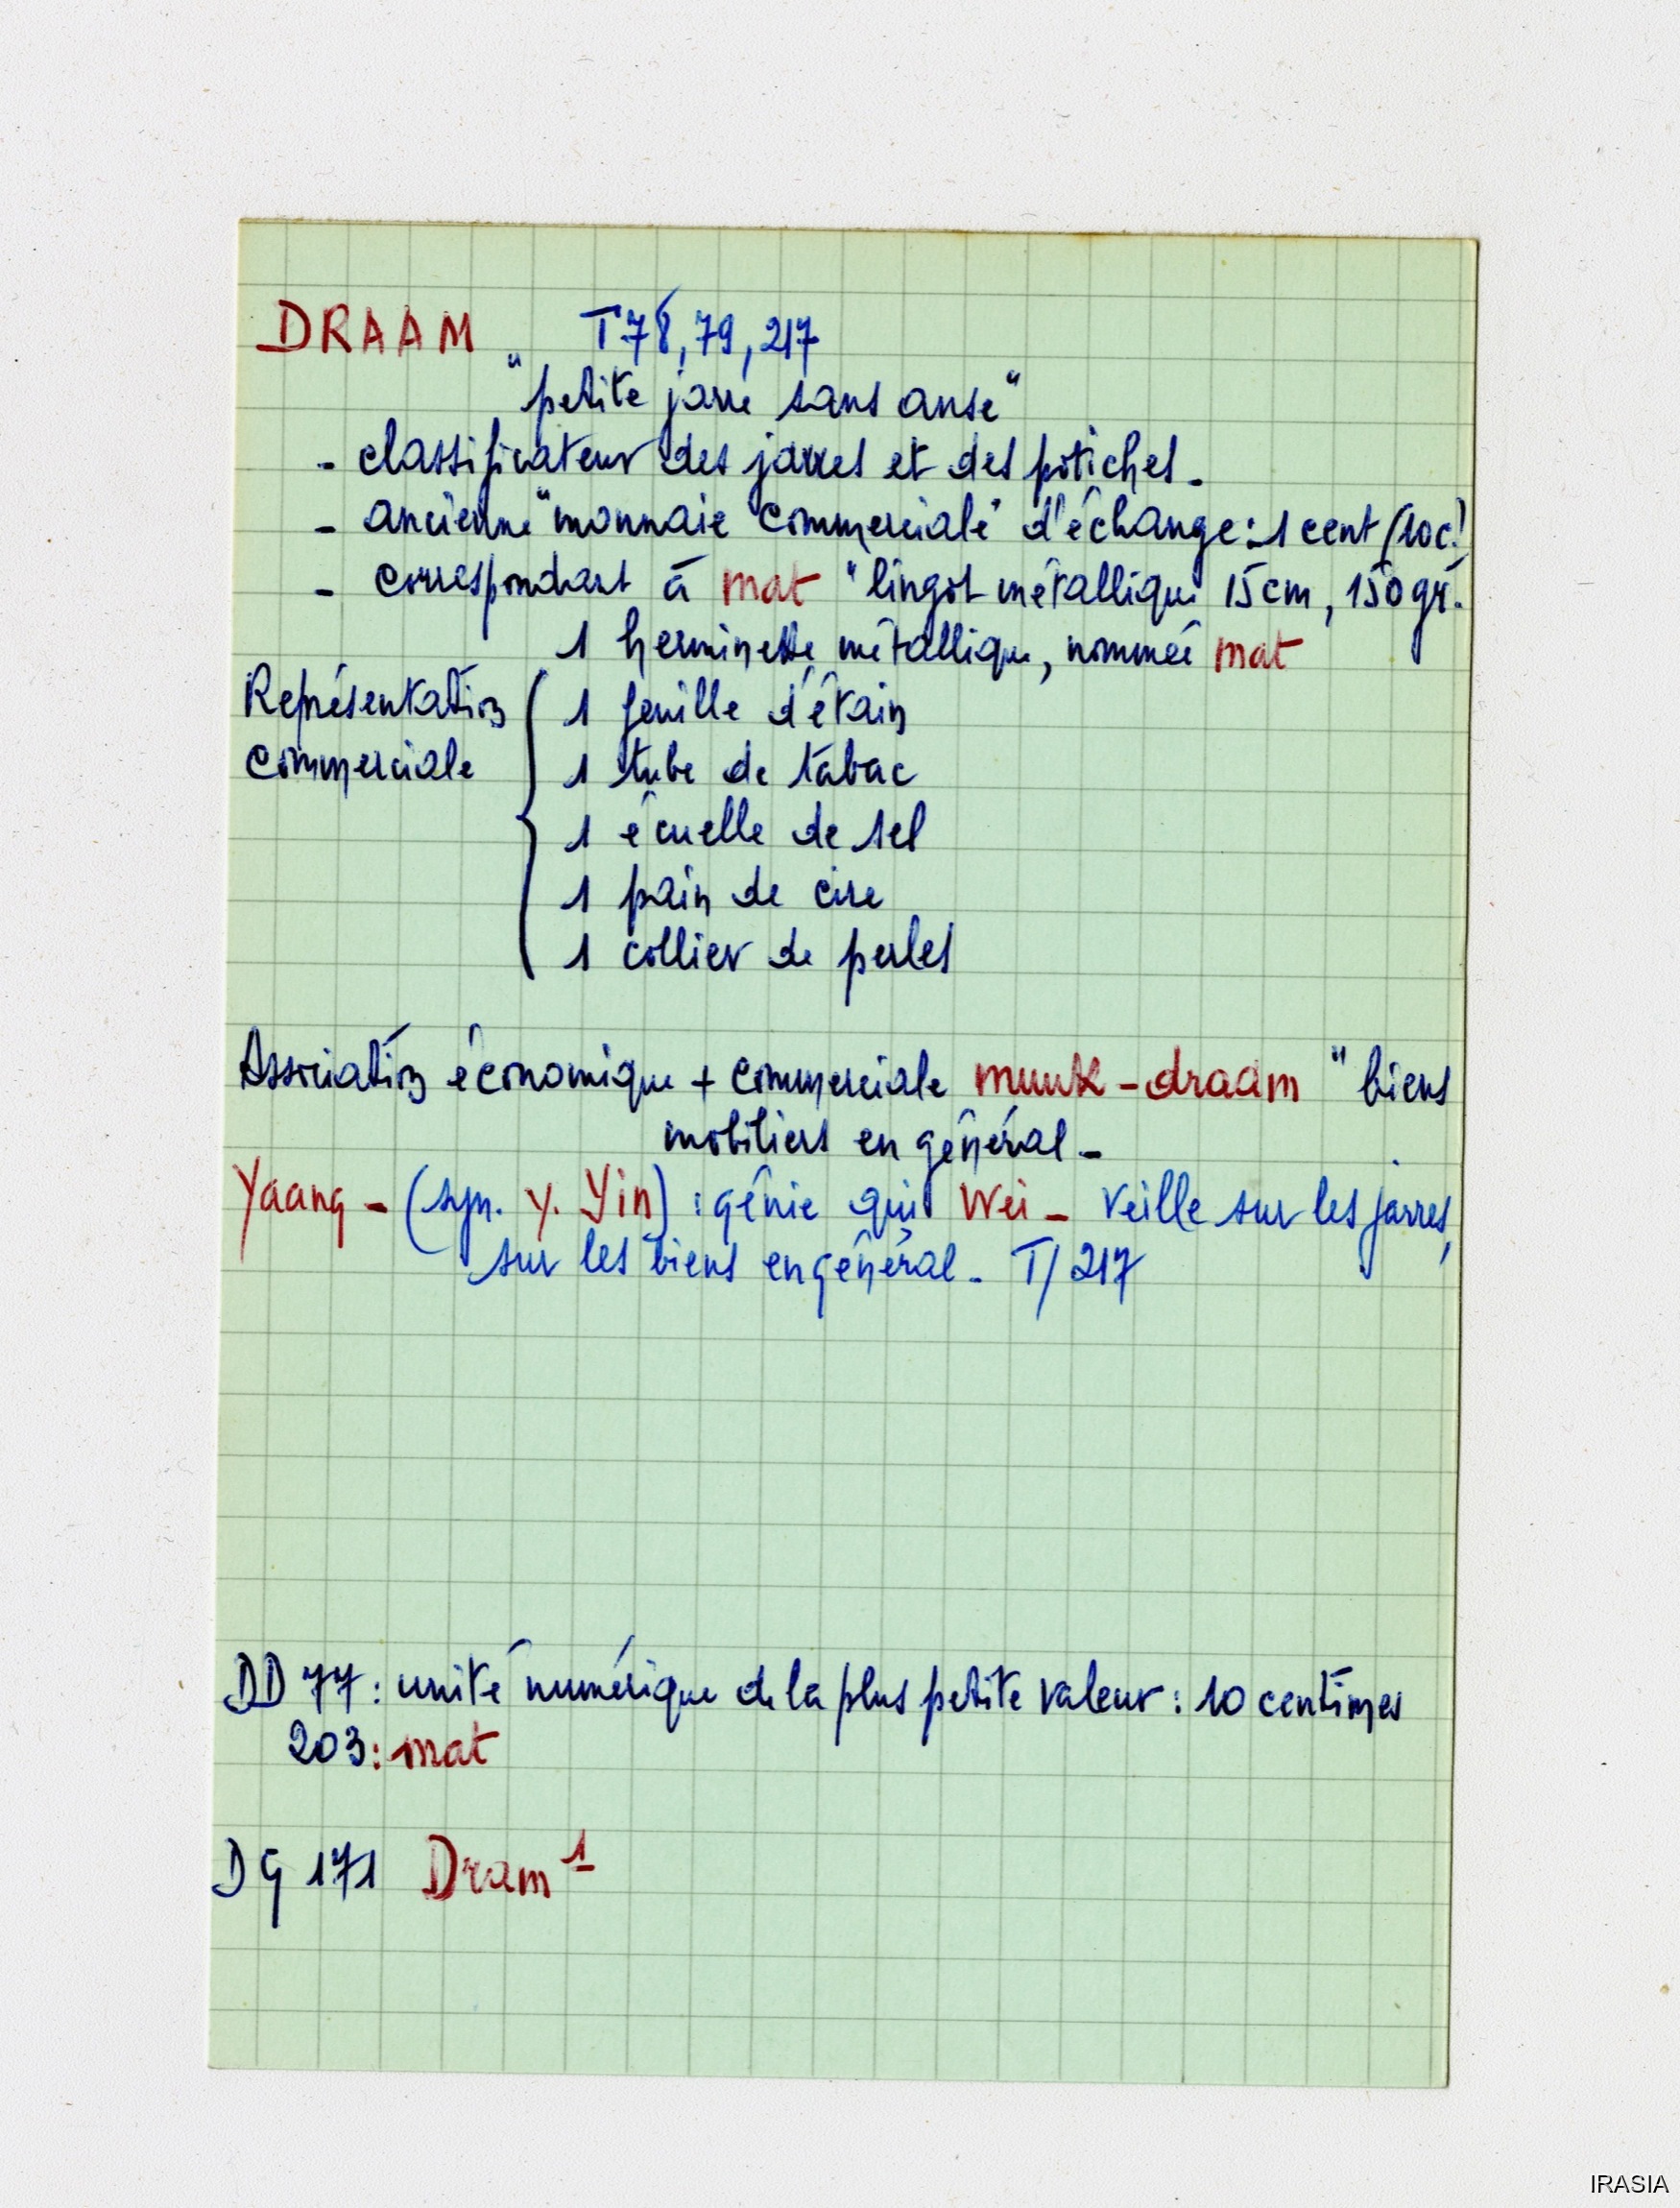 DRAAM T78, 79, 217
"petite jarre sans anse"
- classificateur des jarres et des potiches -
- ancienne "monnaie commerciale" d'échange : 1 cent (10c!)
- correspondant à mat "lingot métallique 15cm, 150gr.
1 herminette métallique, nommée mat
Représentation
commerciale
1 feuille d'étain
1 tube de tabac
1 écuelle de sel
1 pain de cire
1 collier de perles
Association économique + commerciale muuk - draam "biens
mobiliers en général -
Yaang - (syn. Y. Yin) : génie qui Wei - veille sur les jarres,
sur les biens en général - T/217
DD 77 : unité numérique de la plus petite valeur : 10 centimes
203 : mat
DG 171 Dram 1
IRASIA